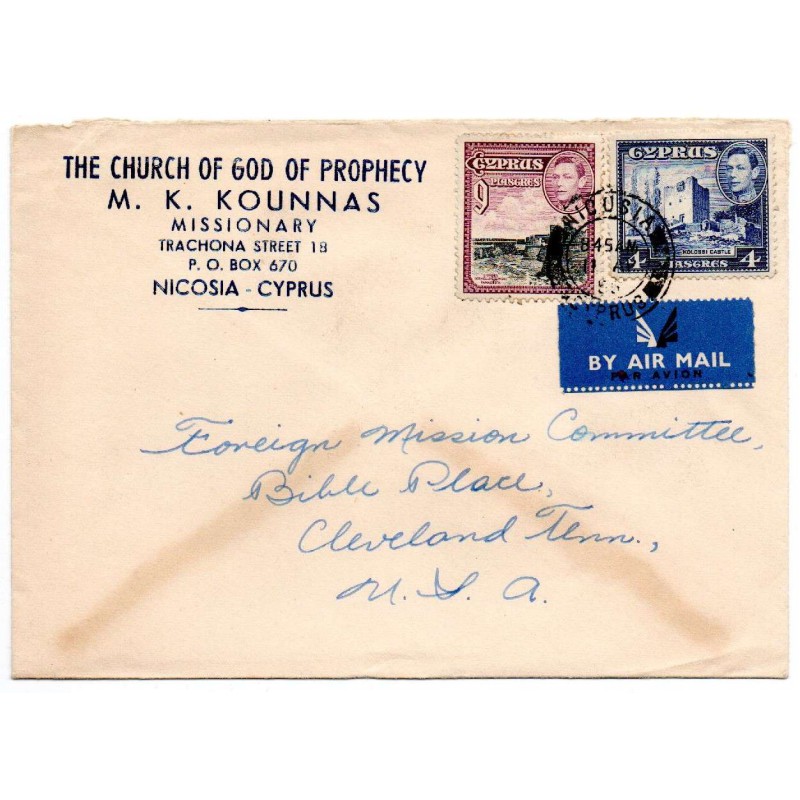 THE CHURCH OF GOD OF PROPHECY
M. K. KOUNNAS
MISSIONARY
TRACHONA STREET 18
P. O. BOX 670
NICOSIA - CYPRUS
CYPRUS
9
PIASTRES
CYPRUS
KOLOSSI CASTLE
4 PIASTRES 4
NICOSIA
8.45 AM
CYPRUS
BY AIR MAIL
PAR AVION
Foreign Mission Committee,
Bible Place,
Cleveland Tenn.,
U. S. A.